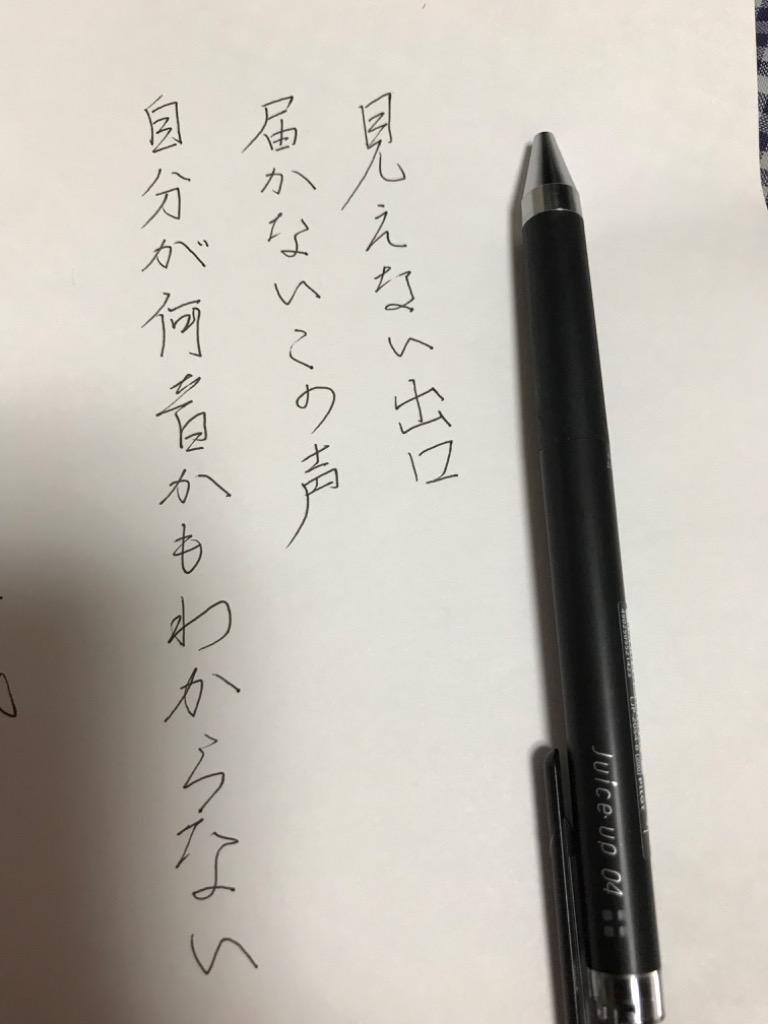 見えない出口
届かないこの声
自分が何音かもわからない
Juice up 04